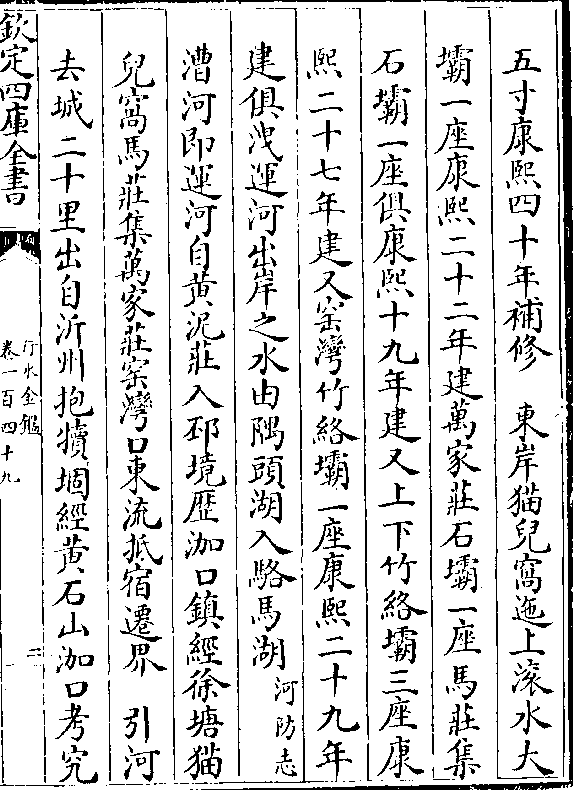 五寸康熙四十年補修　東岸猫兒窩迤上滚水大
壩一座康熙二十二年建萬家莊石壩一座馬莊集
石壩一座俱康熙十九年建又上下竹絡壩三座康
熙二十七年建又窑灣竹絡壩一座康熙二十九年
建俱洩運河出岸之水由隅頭湖入駱馬湖河防志
漕河即運河自黄泥莊入邳境歴泇口鎮經徐塘猫
兒窩馬莊集萬家莊窑灣口東流抵宿遷界　引河
去城二十里出自沂州抱犢崮經黄石山泇口考究
欽定四庫全書
行水金鑑
卷一百四十九
二